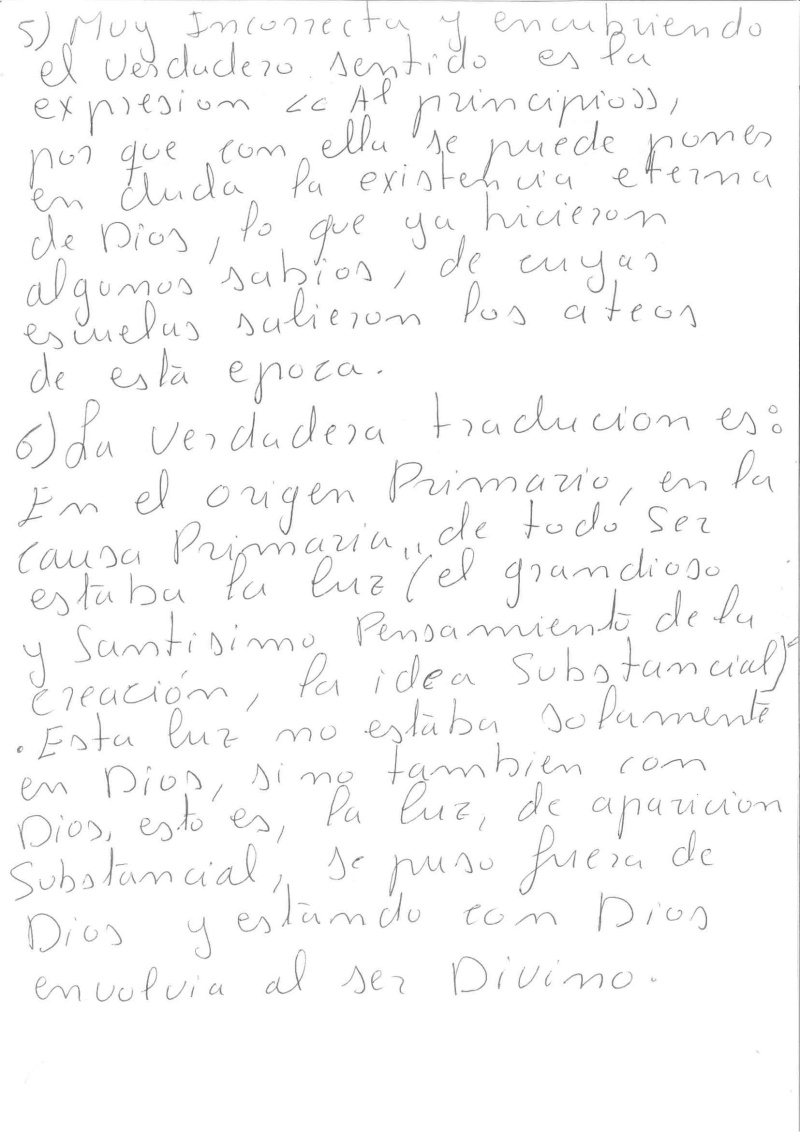 5) Muy Incorrecta y encubriendo
el verdadero sentido es la
expresion << Al principio>>,
por que con ella se puede poner
en duda la existencia eterna
de Dios, lo que ya hicieron
algunos sabios, de cuyas
escuelas salieron los ateos
de esta epoca.
6) La verdadera traducion es:
En el origen Primario, en la
causa Primaria,, de todo ser
estaba la luz (el grandioso
y Santisimo Pensamiento de la
creación, la idea Substancial)
. Esta luz no estaba solamente
en Dios, si no tambien con
Dios, esto es, la luz, de aparicion
Substancial, se puso fuera de
Dios y estando con Dios
envolvia al ser Divino.